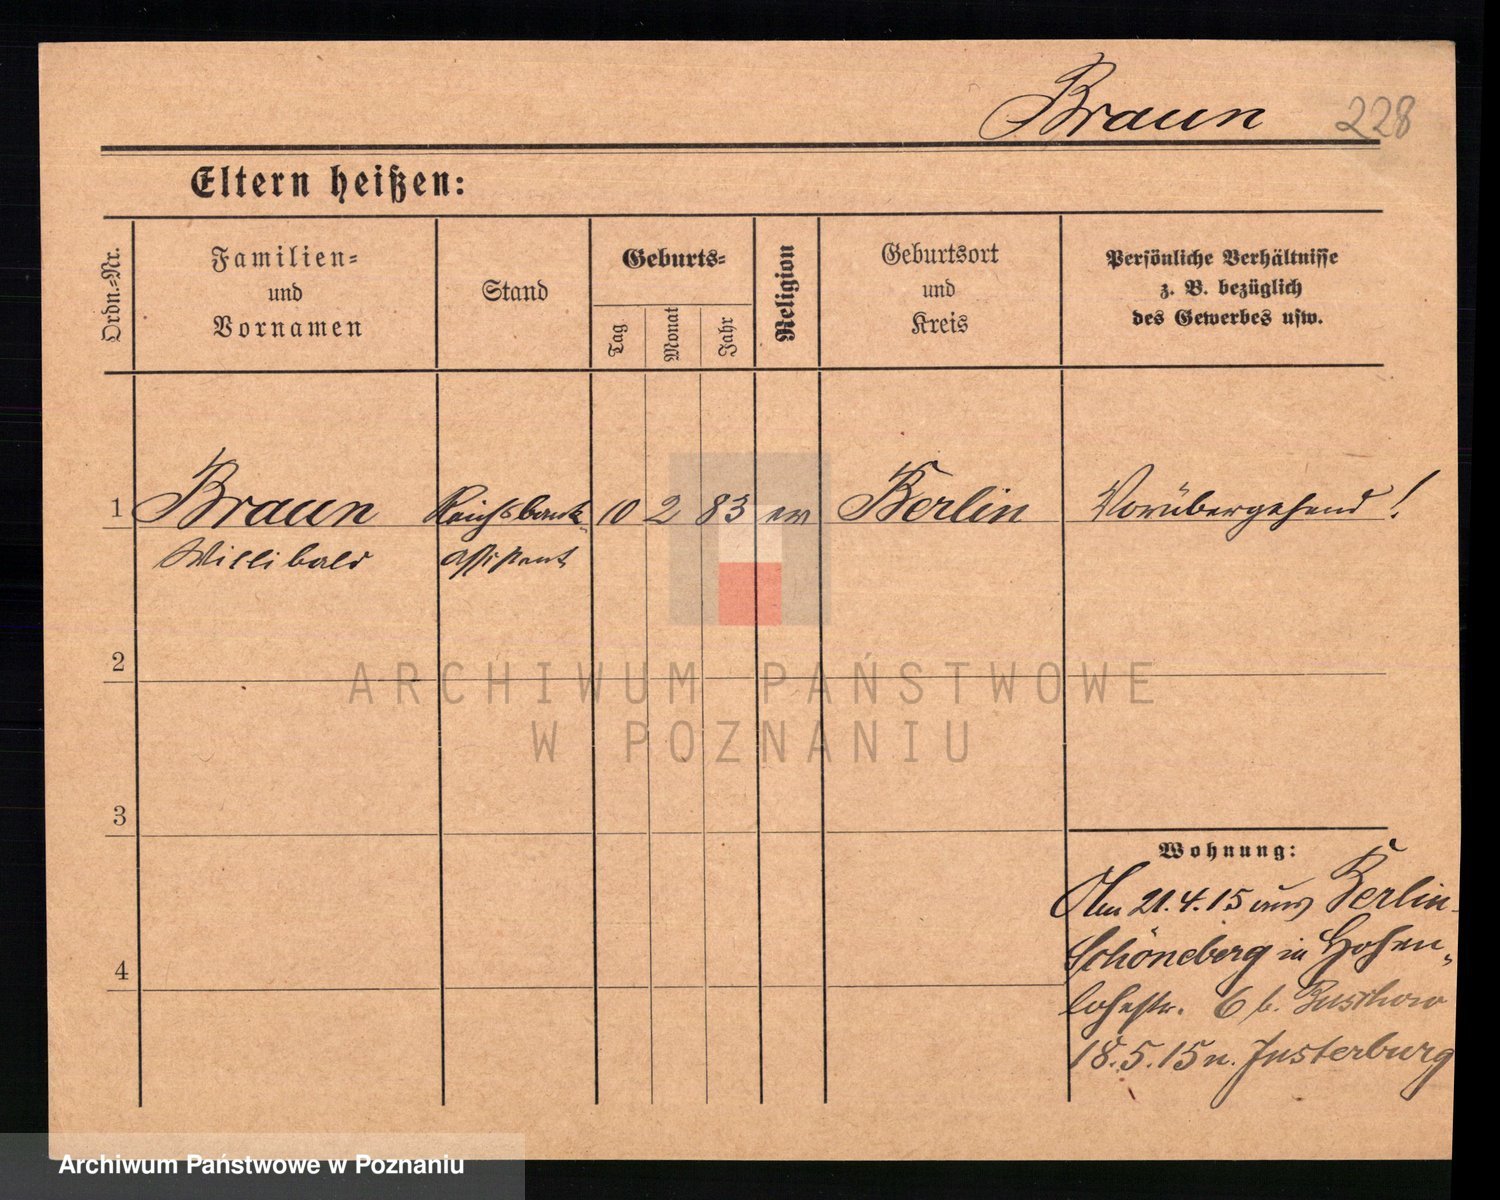 Braun 228
Eltern heißen:
Ordn.-Nr.
Familien-
und
Vornamen
Stand
Geburts-
Tag
Monat
Jahr
Religion
Geburtsort
und
Kreis
Persönliche Verhältnisse
z. B. bezüglich
des Gewerbes usw.
1 Braun Reichsbank- 10 2 83 ev Berlin Vorübergehend!
Willibald assistent
2
ARCHIWUM PAŃSTWOWE
W POZNANIU
3
Wohnung:
Am 21.4.15 aus Berlin-
Schöneberg in Hohen-
4
lohestr. 6 b.
18.5.15 n. Insterburg
Archiwum Państwowe w Poznaniu